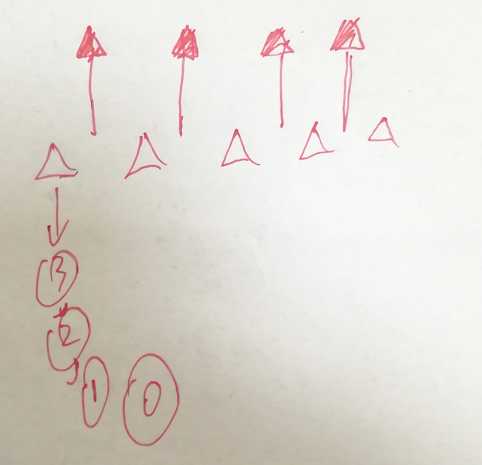 3
2
1
0